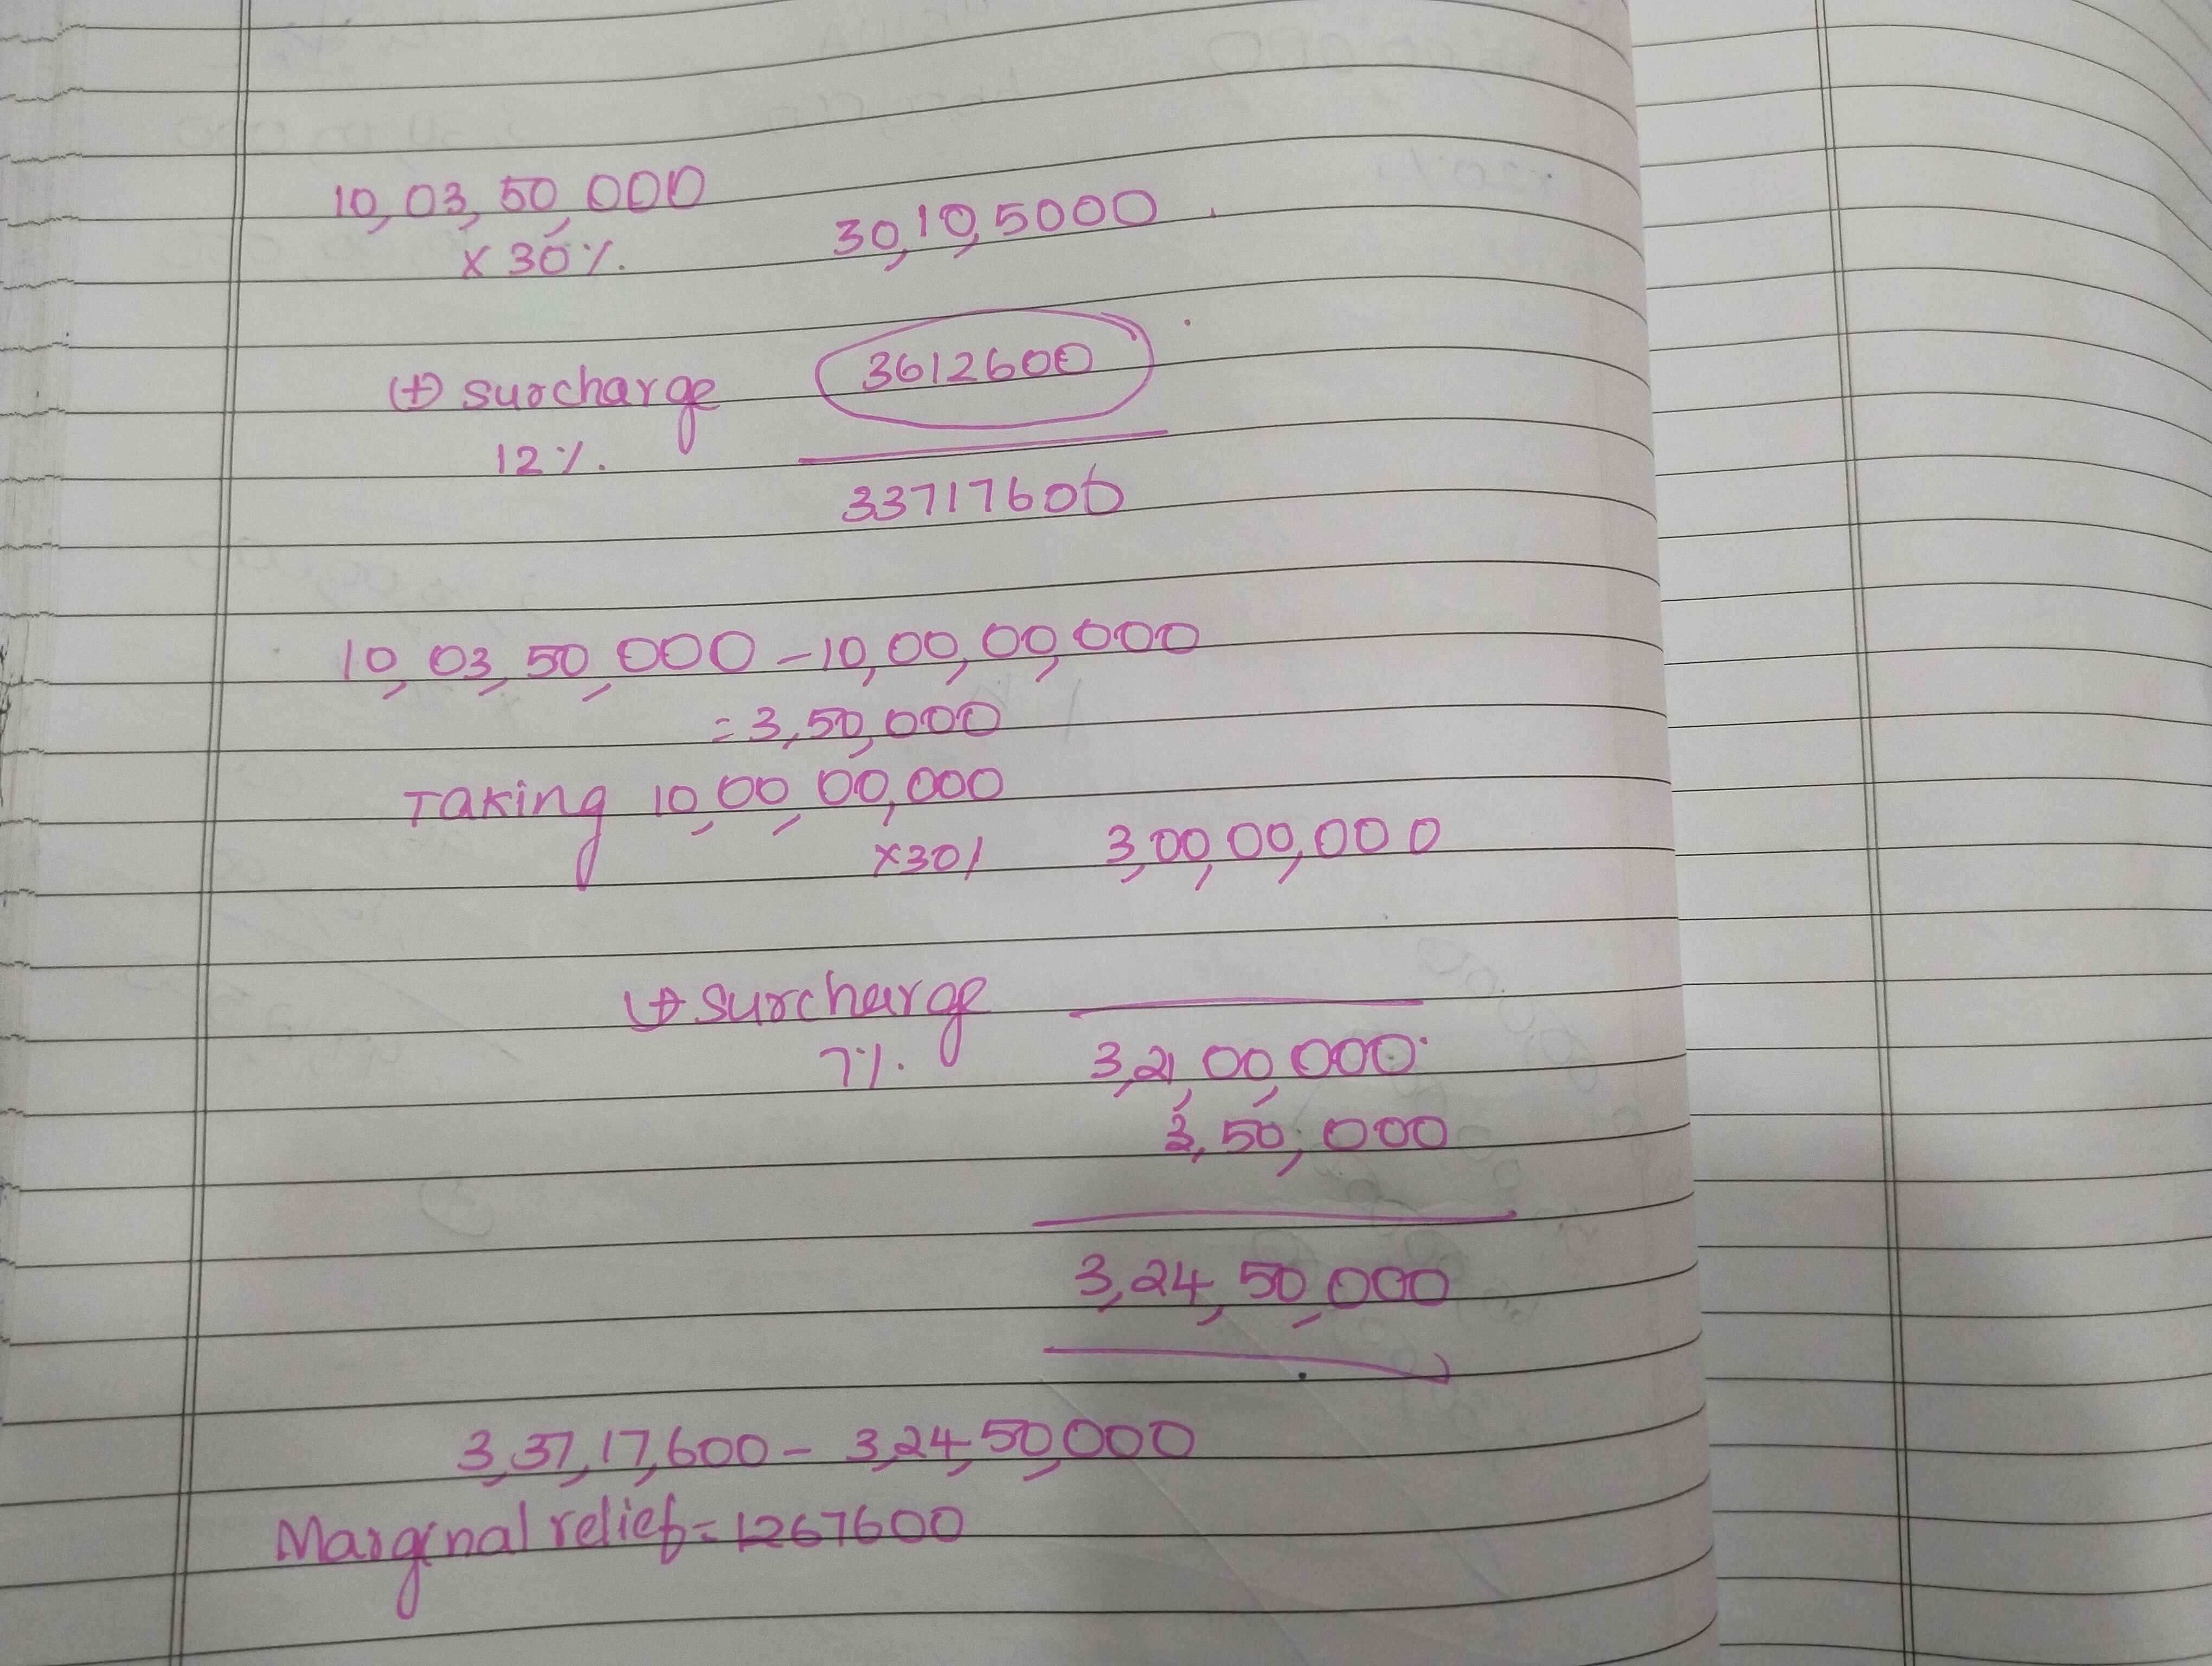 10,03,50,000
x 30%. 30,10,5000
(+) surcharge 3612600
12%.
33717600
10,03,50,000 - 10,00,00,000
= 3,50,000
Taking 10,00,00,000
x30% 3,00,00,000
(+) surcharge
7%. 3,21,00,000
3,50,000
3,24,50,000
3,37,17,600 - 3,24,50,000
Marginal relief = 1267600